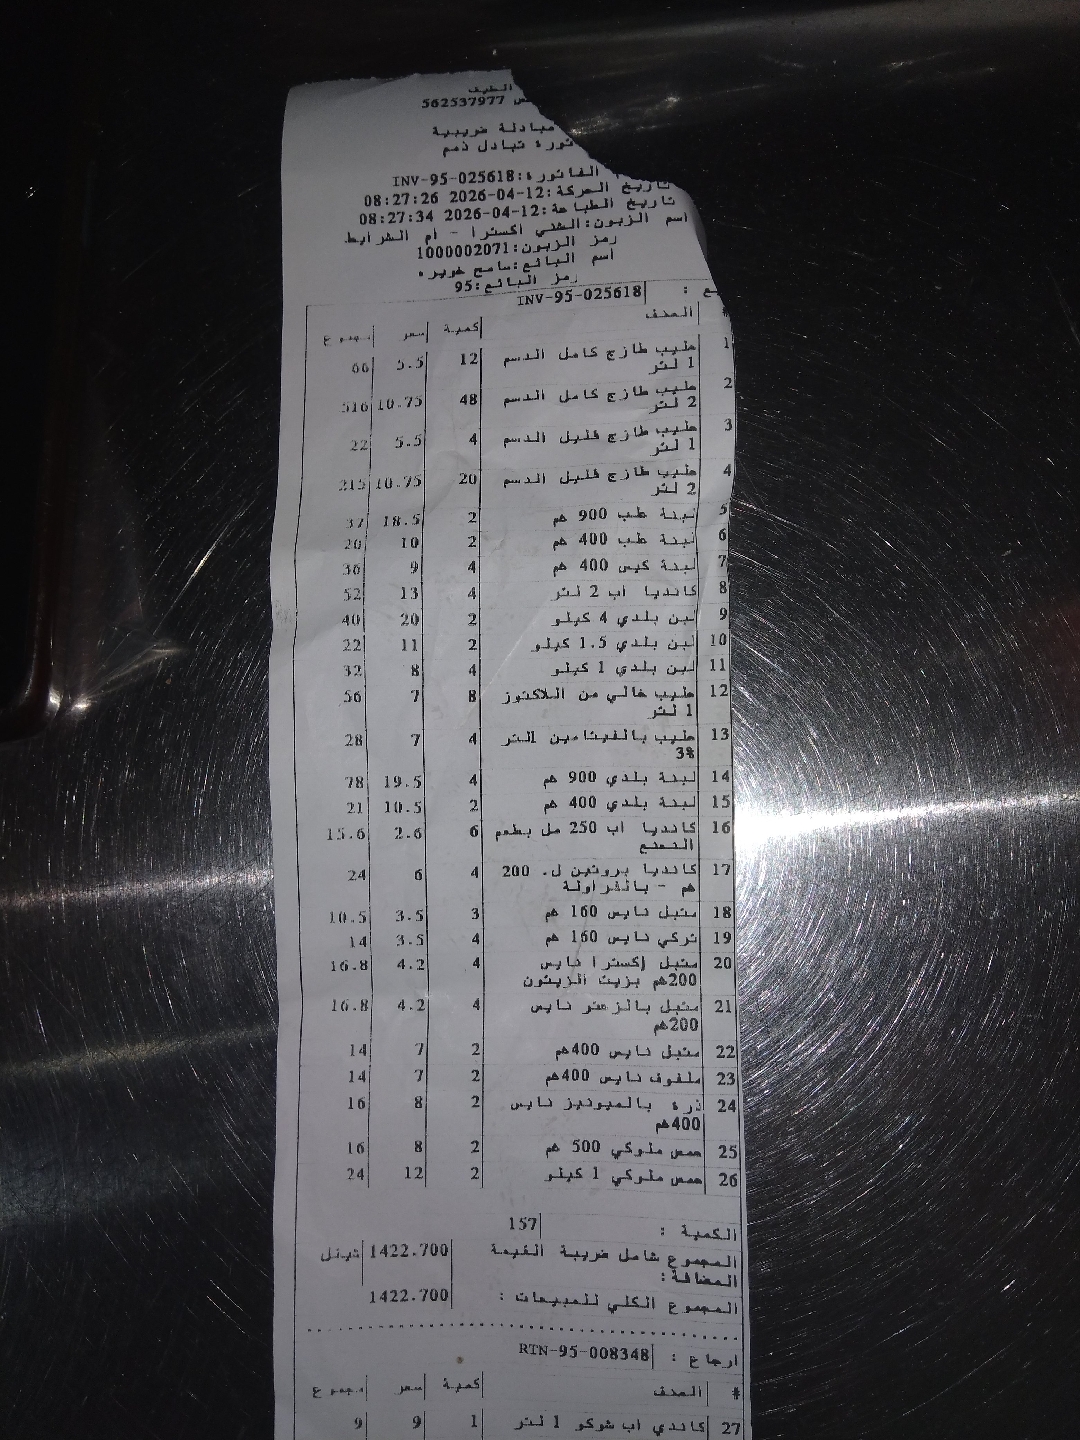 الطيف
562537977
مبادلة ضريبية
تبادل ذمم
الفاتورة: INV-95-025618
تاريخ الحركة: 2026-04-12 08:27:26
تاريخ الطباعة: 2026-04-12 08:27:34
اسم الزبون: الشني اكسترا - ام الشرايط
رمز الزبون: 1000002071
اسم البائع: سامح
رمز البائع: 95
: INV-95-025618
# الصنف كمية سعر مجموع
1 حليب طازج كامل الدسم 12 5.5 66
1 لتر
2 حليب طازج كامل الدسم 48 10.75 516
2 لتر
3 حليب طازج قليل الدسم 4 5.5 22
1 لتر
4 حليب طازج قليل الدسم 20 10.75 215
2 لتر
5 لبنة طب 900 غم 2 18.5 37
6 لبنة طب 400 غم 2 10 20
7 لبنة كيس 400 غم 4 9 36
8 كانديا اب 2 لتر 4 13 52
9 لبن بلدي 4 كيلو 2 20 40
10 لبن بلدي 1.5 كيلو 2 11 22
11 لبن بلدي 1 كيلو 4 8 32
12 حليب خالي من اللاكتوز 8 7 56
1 لتر
13 حليب بالفيتامين 1لتر 4 7 28
3%
14 لبنة بلدي 900 غم 4 19.5 78
15 لبنة بلدي 400 غم 2 10.5 21
16 كانديا اب 250 مل بطعم 6 2.6 15.6
النعنع
17 كانديا بروتين ل. 200 4 6 24
غم - بالفراولة
18 متبل نايس 160 غم 3 3.5 10.5
19 تركي نايس 160 غم 4 3.5 14
20 متبل إكسترا نايس 4 4.2 16.8
200غم بزيت الزيتون
21 متبل بالزعتر نايس 4 4.2 16.8
200غم
22 متبل نايس 400غم 2 7 14
23 ملفوف نايس 400غم 2 7 14
24 ذرة بالميونيز نايس 2 8 16
400غم
25 حمص ملوكي 500 غم 2 8 16
26 حمص ملوكي 1 كيلو 2 12 24
الكمية : 157
المجموع شامل ضريبة القيمة 1422.700 شيقل
المضافة:
المجموع الكلي للمبيعات : 1422.700
ارجاع : RTN-95-008348
# الصنف كمية سعر مجموع
27 كاندي اب شوكو 1 لتر 1 9 9